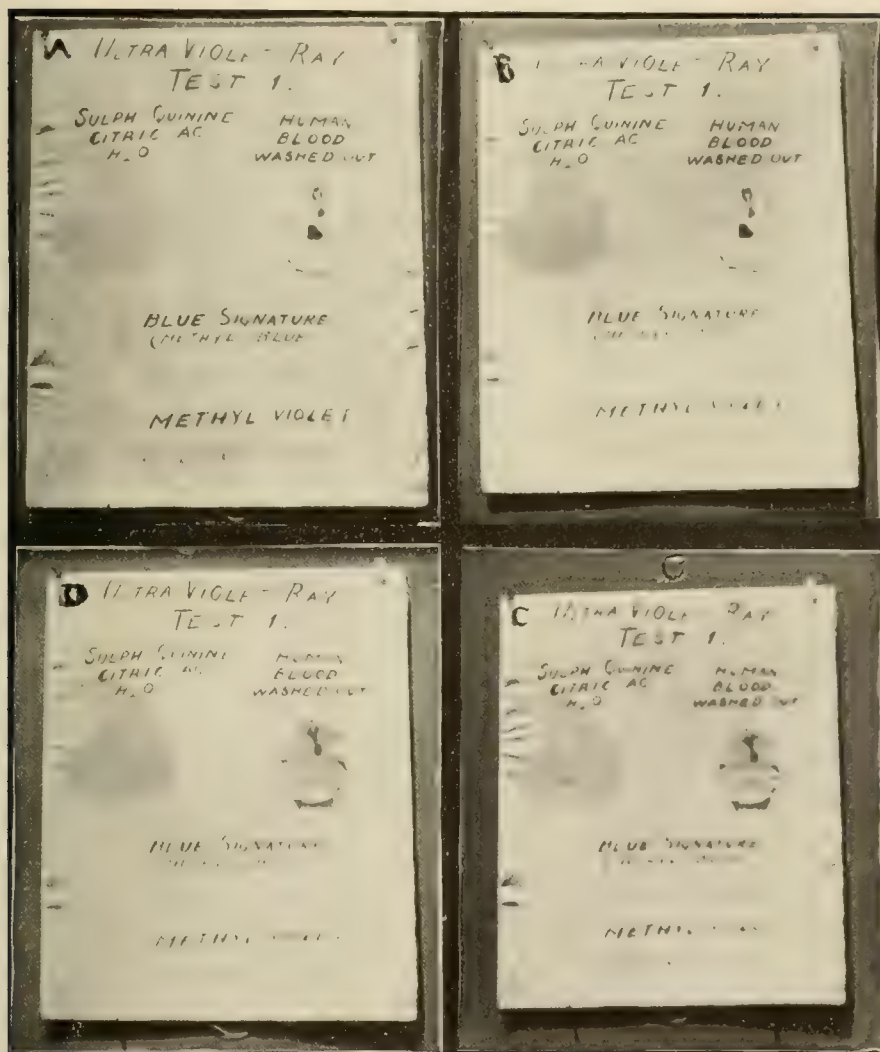 A ULTRA VIOLET RAY
TEST 1.
SULPH QUININE
CITRIC AC
H2O
HUMAN
BLOOD
WASHED OUT
BLUE SIGNATURE
(METHYL BLUE
METHYL VIOLET
B VIOLET RAY
TEST 1.
SULPH QUININE
CITRIC AC
H2O
HUMAN
BLOOD
WASHED OUT
BLUE SIGNATURE
METHYL VIOLET
D ULTRA VIOLET RAY
TEST 1.
SULPH QUININE
CITRIC AC
H2O
HUMAN
BLOOD
WASHED OUT
BLUE SIGNATURE
METHYL
C
C ULTRA VIOLET RAY
TEST 1.
SULPH QUININE
CITRIC AC
H2O
HUMAN
BLOOD
WASHED OUT
BLUE SIGNATURE
METHYL